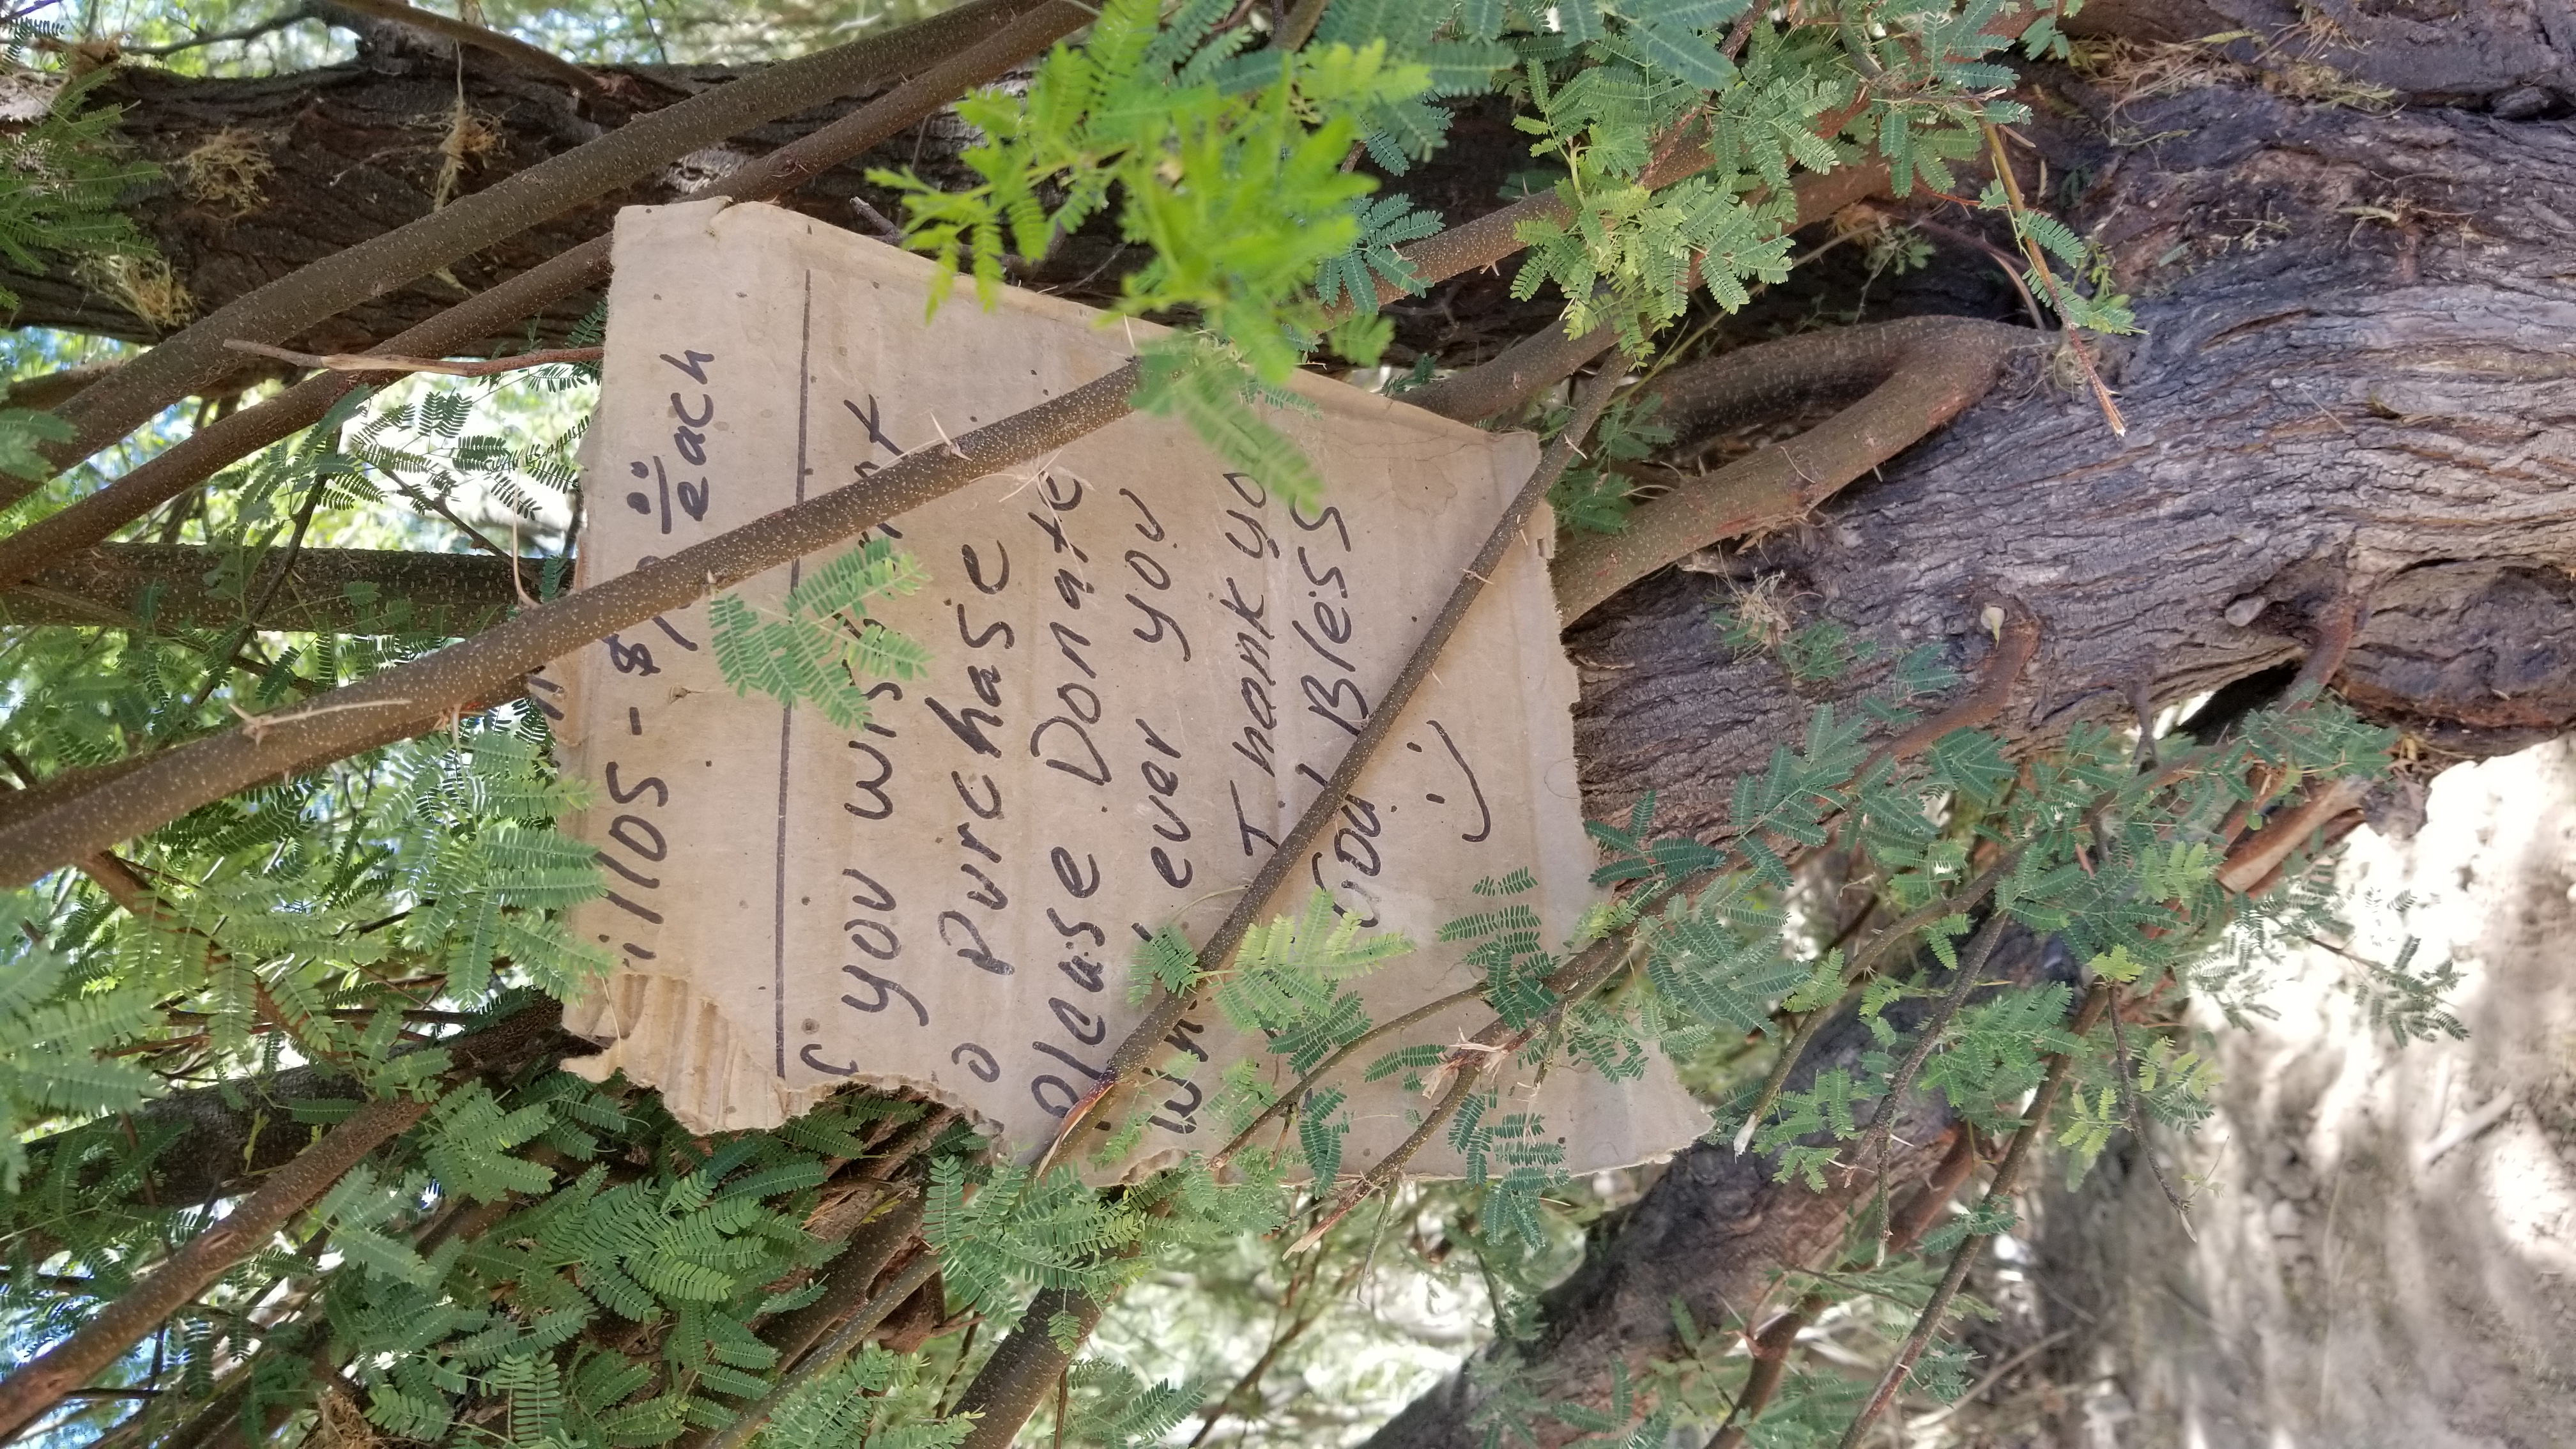 illos - $
each
you wis
o Purchase
please Donate
ever you
Thank yo
God Bless
:)